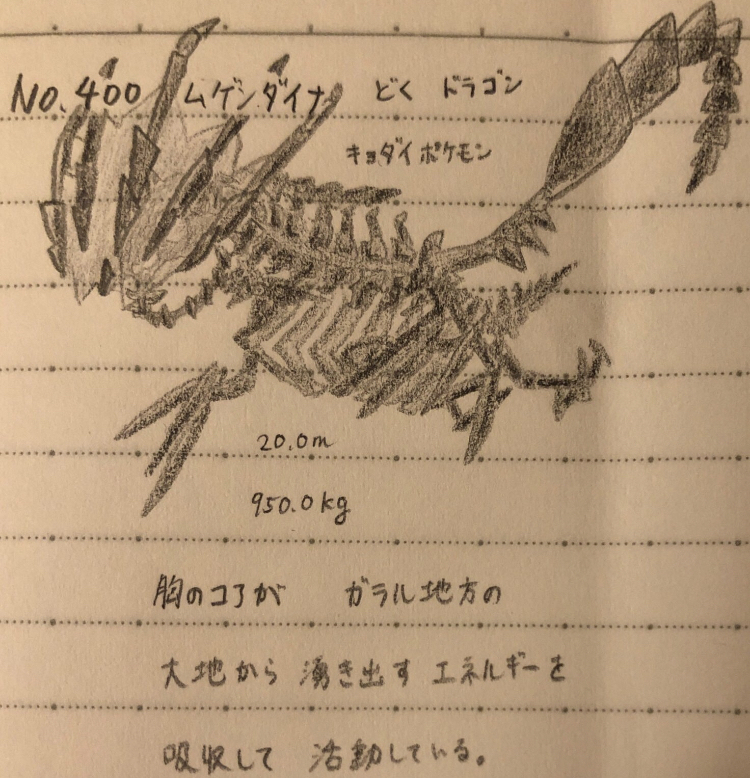 No.400 ムゲンダイナ どく ドラゴン
キョダイポケモン
20.0m
950.0kg
胸のコアが ガラル地方の
大地から 湧き出す エネルギーを
吸収して 活動している。